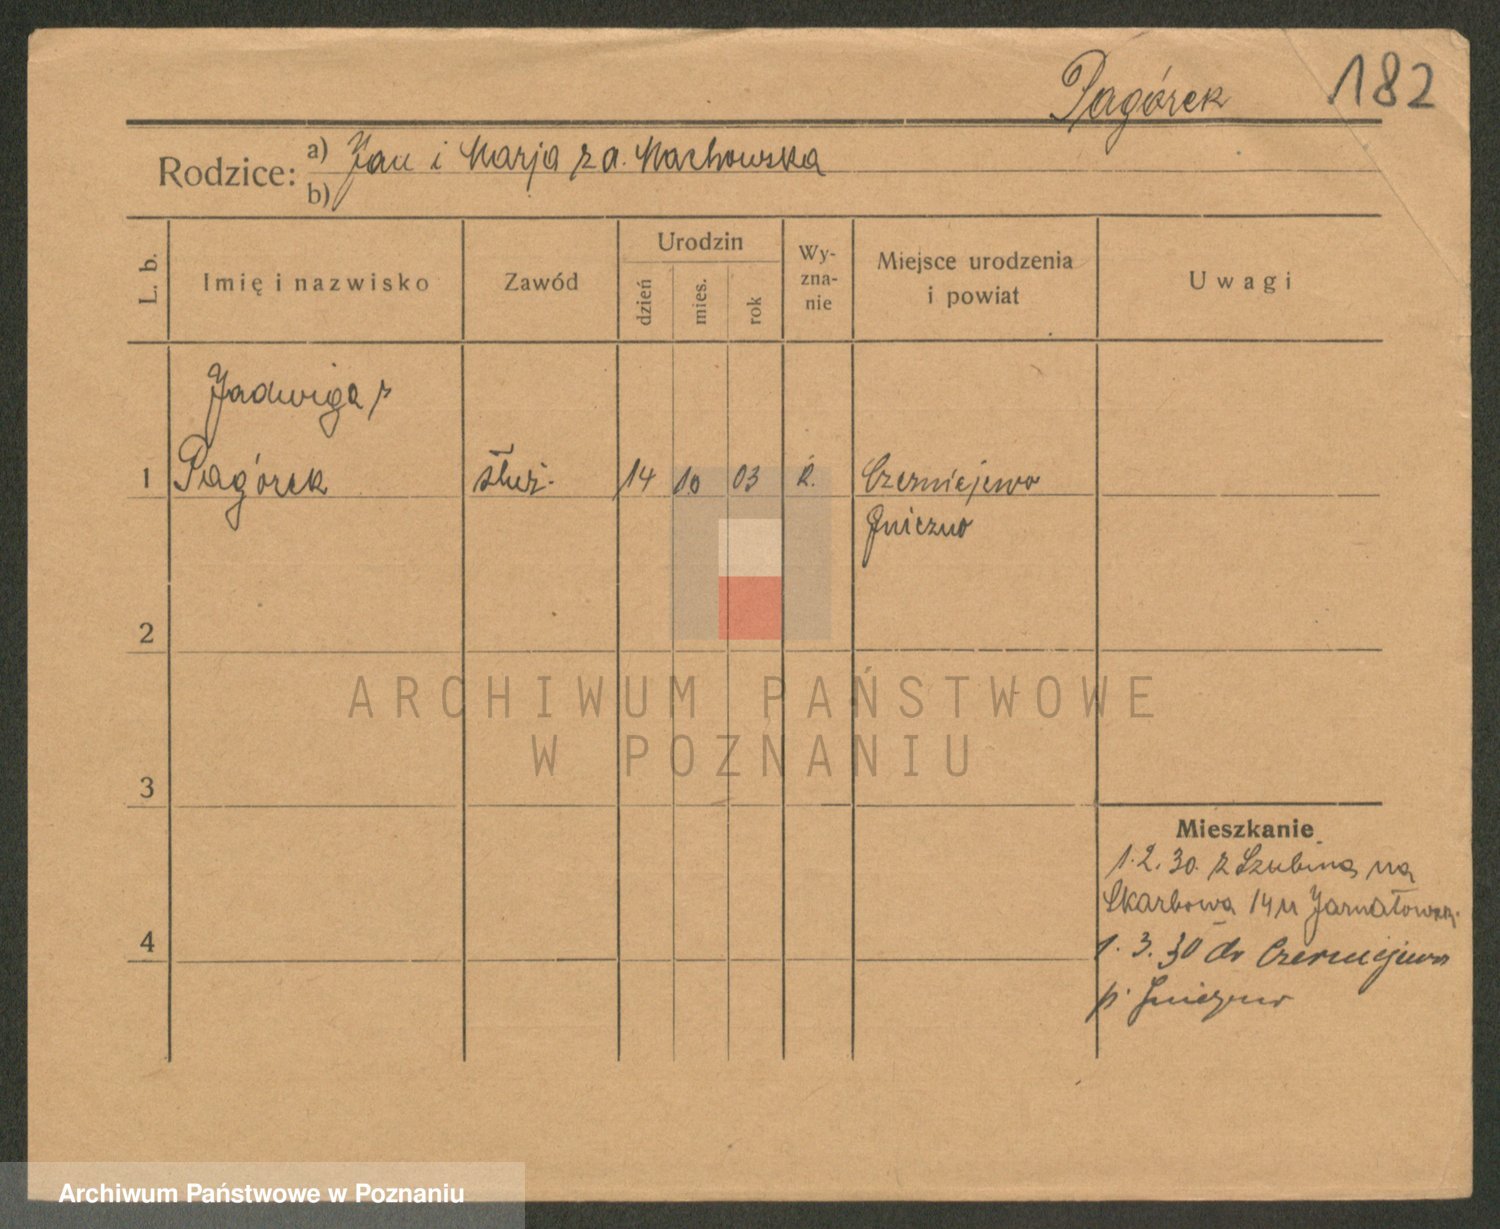 Pagórek 182
Rodzice: a) Jan i Marja z d. Machowska
b)
L. b.
Imię i nazwisko
Zawód
Urodzin
dzień
mies.
rok
Wy-
zna-
nie
Miejsce urodzenia
i powiat
Uwagi
Jadwiga
1 Pagórek służ. 14 10 03 k. Czerniejewo
Gniezno
2
ARCHIWUM PAŃSTWOWE
W POZNANIU
3
Mieszkanie
1.2.30. z Szubina na
Skarbowa 14 u
4
1.3.30 do Czerniejewo
p. Gniezno
Archiwum Państwowe w Poznaniu